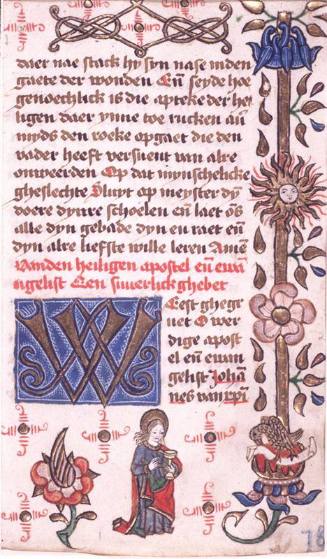 daer nae stack hy syn nase inden
gaete der wonden Eñ seyde hoe
genoechlick is die apteke der hei
ligen daer ynne toe rucken añ
myds den roeke opgaet die den
vader heeft versuent van alre
onweerden Op dat mynschelicke
gheslechte Sluyt op meyster dy
doere dynre schoelen eñ laet ōs
alle dyn gebade dyn eñ raet eñ
dyn alre liefste wille leren Amē
Vanden heiligen apostel eñ ewā
ngelist Een suuerlick ghebet
W
Eest ghegr
uet O wer
dige apost
el eñ ewan
gelist Johā
nes van
78